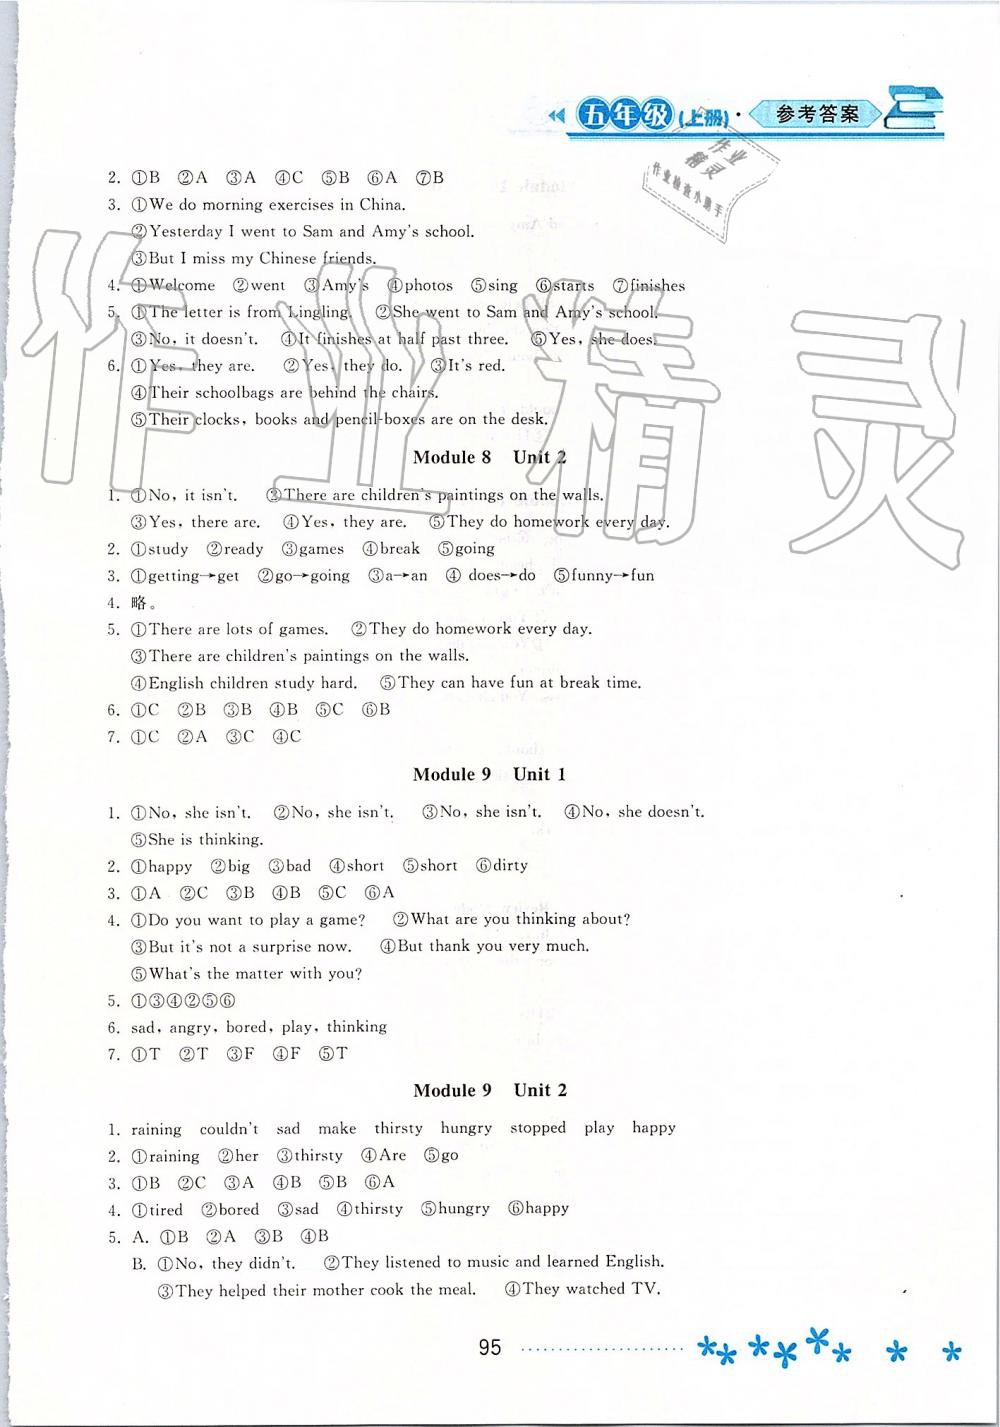 五年级(上册)·参考答案
作业精灵
作业检查小助手
2. ①B ②A ③A ④C ⑤B ⑥A ⑦B
3. ①We do morning exercises in China.
②Yesterday I went to Sam and Amy's school.
③But I miss my Chinese friends.
4. ①Welcome ②went ③Amy's ④photos ⑤sing ⑥starts ⑦finishes
5. ①The letter is from Lingling. ②She went to Sam and Amy's school.
③No, it doesn't. ④It finishes at half past three. ⑤Yes, she does.
6. ①Yes, they are. ②Yes, they do. ③It's red.
④Their schoolbags are behind the chairs.
⑤Their clocks, books and pencil-boxes are on the desk.
Module 8 Unit 2
1. ①No, it isn't. ②There are children's paintings on the walls.
③Yes, there are. ④Yes, they are. ⑤They do homework every day.
2. ①study ②ready ③games ④break ⑤going
3. ①getting→get ②go→going ③a→an ④does→do ⑤funny→fun
4. 略。
5. ①There are lots of games. ②They do homework every day.
③There are children's paintings on the walls.
④English children study hard. ⑤They can have fun at break time.
6. ①C ②B ③B ④B ⑤C ⑥B
7. ①C ②A ③C ④C
Module 9 Unit 1
1. ①No, she isn't. ②No, she isn't. ③No, she isn't. ④No, she doesn't.
⑤She is thinking.
2. ①happy ②big ③bad ④short ⑤short ⑥dirty
3. ①A ②C ③B ④B ⑤C ⑥A
4. ①Do you want to play a game? ②What are you thinking about?
③But it's not a surprise now. ④But thank you very much.
⑤What's the matter with you?
5. ①③④②⑤⑥
6. sad, angry, bored, play, thinking
7. ①T ②T ③F ④F ⑤T
Module 9 Unit 2
1. raining couldn't sad make thirsty hungry stopped play happy
2. ①raining ②her ③thirsty ④Are ⑤go
3. ①B ②C ③A ④B ⑤B ⑥A
4. ①tired ②bored ③sad ④thirsty ⑤hungry ⑥happy
5. A. ①B ②A ③B ④B
B. ①No, they didn't. ②They listened to music and learned English.
③They helped their mother cook the meal. ④They watched TV.
95
作业精灵